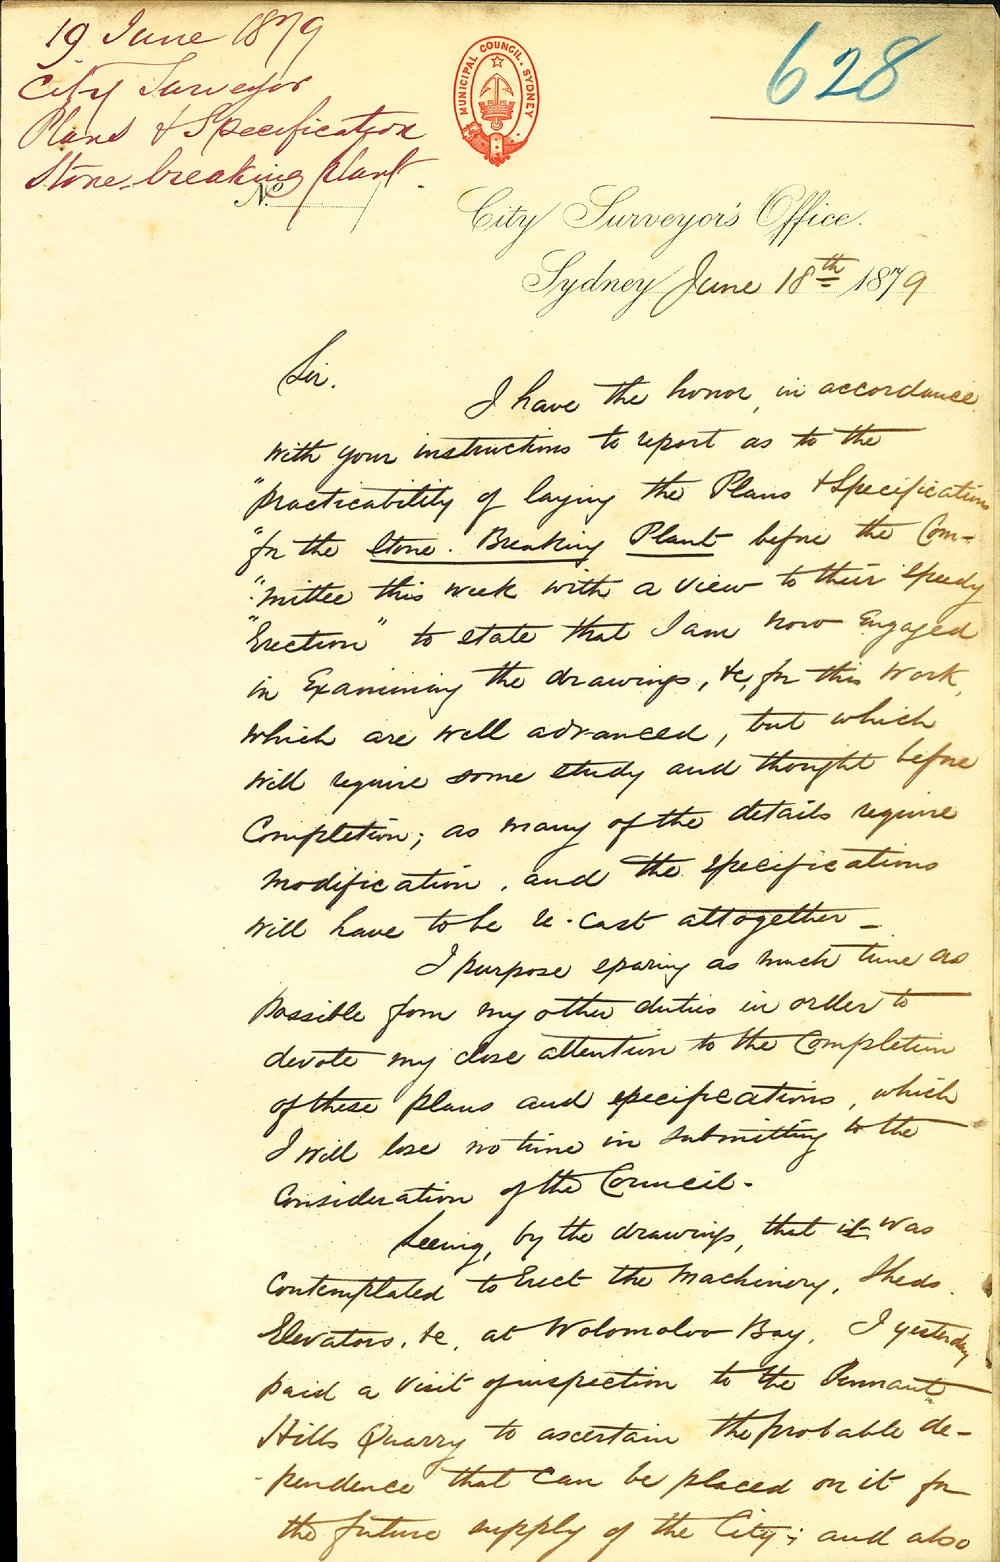 19 June 1879
City Surveyor
Plans & Specification
Stone-breaking plant.
628
MUNICIPAL COUNCIL. SYDNEY.
No.
City Surveyor's Office.
Sydney June 18th 1879
Sir.
I have the honor, in accordance
with your instructions to report as to the
"practicability of laying the Plans & Specifications
"for the Stone. Breaking Plant before the Com-
"mittee this week with a view to their speedy
"Erection" to state that I am now Engaged
in Examining the drawings, &c, for this Work,
which are well advanced, but which
will require some study and thought before
Completion; as many of the details require
modification, and the specifications
will have to be re-cast altogether_
I purpose sparing as much time as
possible from my other duties in order to
devote my close attention to the Completion
of these plans and specifications, which
I will lose no time in submitting to the
Consideration of the Council.
Seeing, by the drawings, that it was
Contemplated to Erect the Machinery, Sheds.
Elevators, &c, at Wolomoloo Bay, I yesterday
paid a visit of inspection to the Pennant
Hills Quarry to ascertain the probable de-
-pendence that can be placed on it for
the future supply of the City; and also